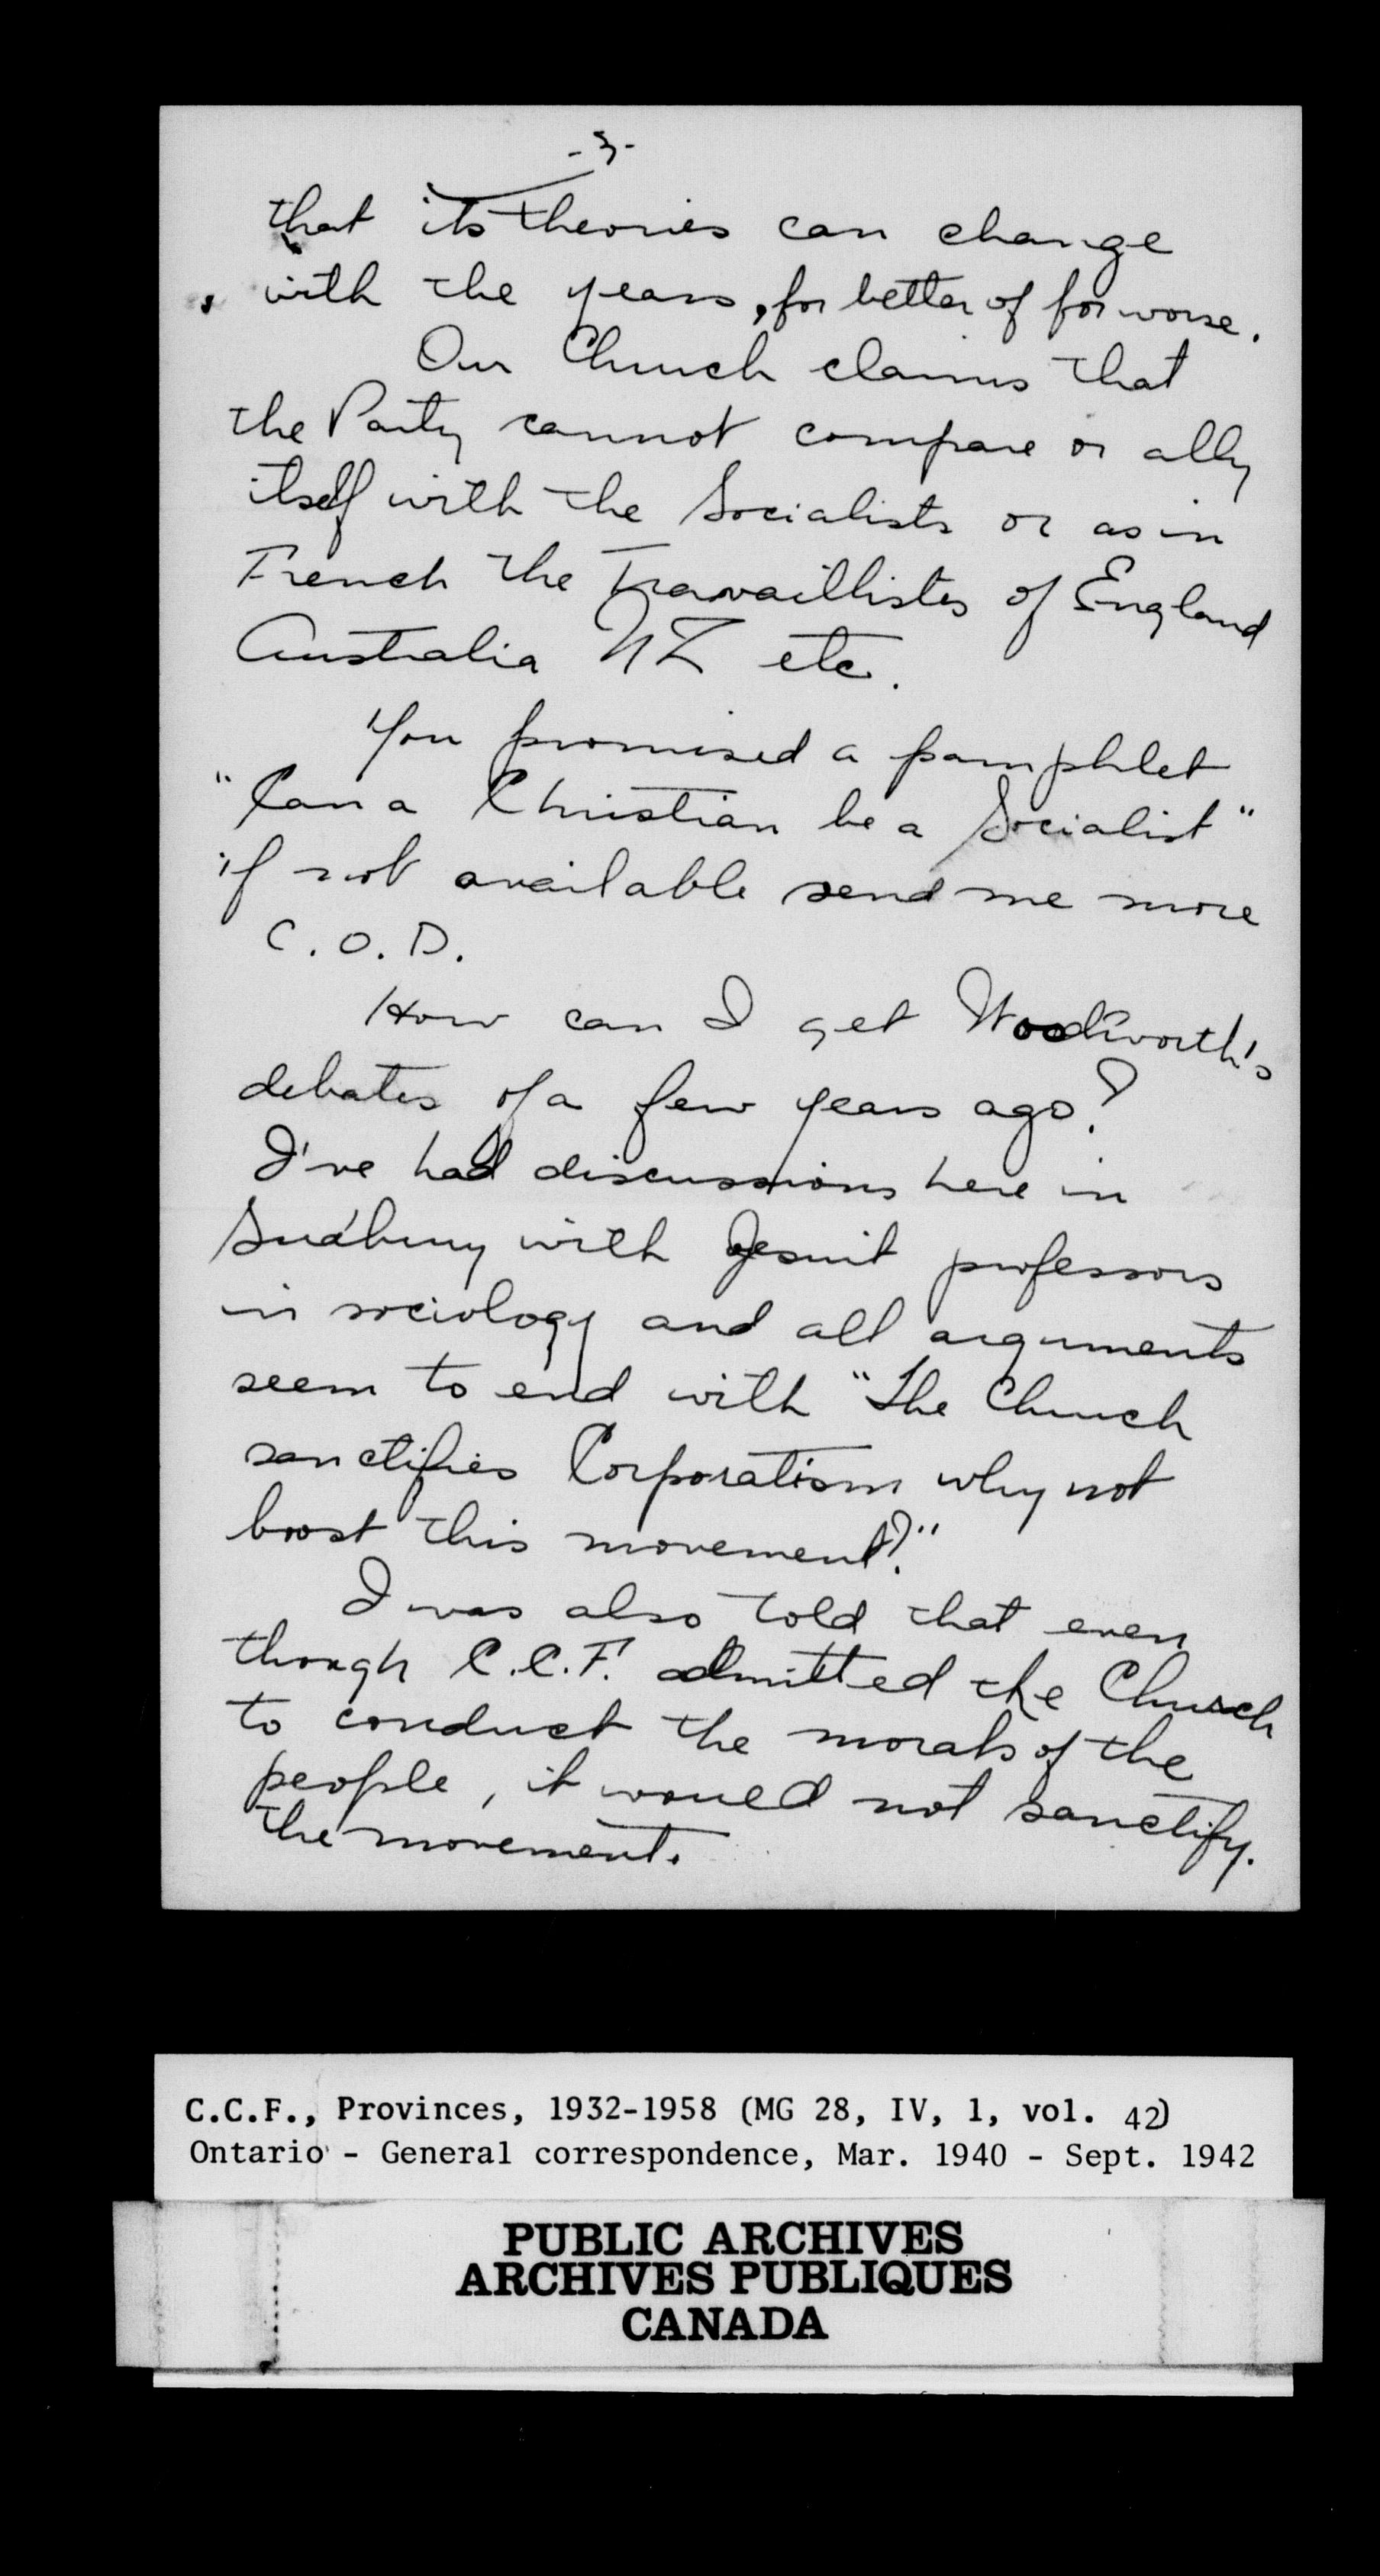 -3-
that its theories can change
with the years, for better of for worse.
Our Church claims that
the Party cannot compare or ally
itself with the Socialists or as in
French the Travaillistes of England
Australia NZ etc.
You promised a pamphlet
"Can a Christian be a Socialist"
if not available send me more
C.O.D.
How can I get Woodsworth's
debates of a few years ago?
I've had discussions here in
Sudbury with Jesuit professors
in sociology and all arguments
seem to end with "The Church
sanctifies Corporatism why not
boost this movement?"
I was also told that even
though C.C.F. admitted the Church
to conduct the morals of the
people, it would not sanctify.
the movement.
C.C.F., Provinces, 1932-1958 (MG 28, IV, 1, vol. 42)
Ontario - General correspondence, Mar. 1940 - Sept. 1942
PUBLIC ARCHIVES
ARCHIVES PUBLIQUES
CANADA